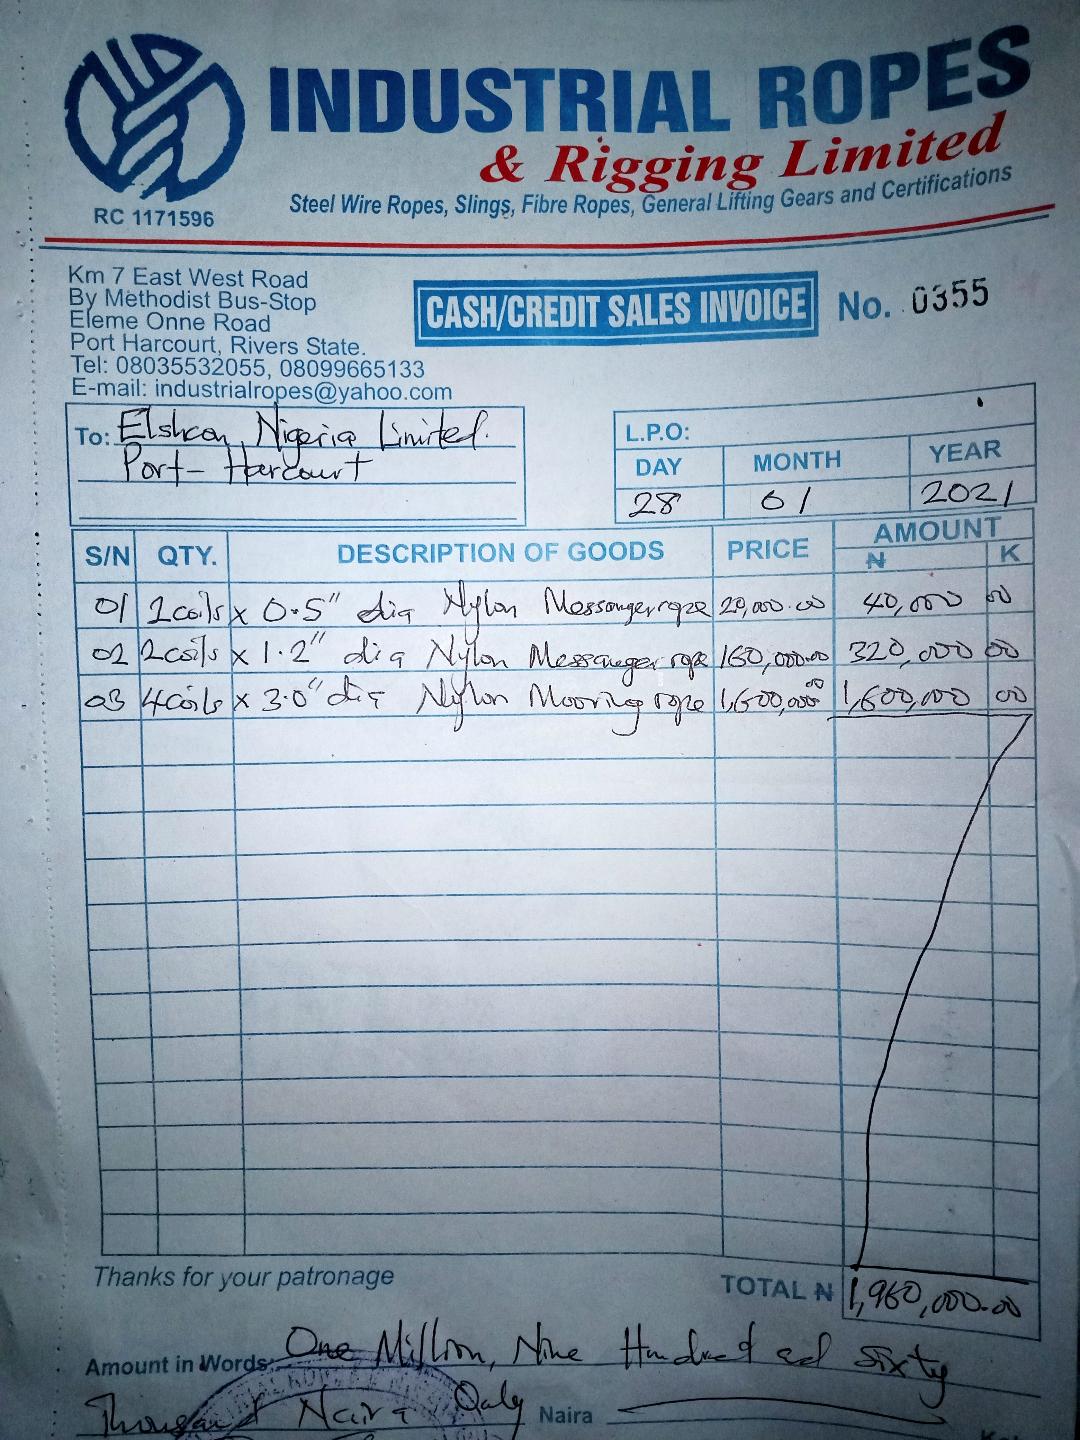 INDUSTRIAL ROPES
& Rigging Limited
Steel Wire Ropes, Slings, Fibre Ropes, General Lifting Gears and Certifications
RC 1171596
Km 7 East West Road
By Methodist Bus-Stop
Eleme Onne Road
Port Harcourt, Rivers State.
Tel: 08035532055, 08099665133
E-mail: industrialropes@yahoo.com
CASH/CREDIT SALES INVOICE No. 0355
To: Elshcon Nigeria Limited.
Port-Harcourt
L.P.O:
DAY MONTH YEAR
28 01 2021
S/N QTY. DESCRIPTION OF GOODS PRICE AMOUNT
₦ K
01 2coils x 0.5" dia Nylon Messanger rope 20,000.00 40,000 00
02 2coils x 1.2" dia Nylon Messanger rope 160,000.00 320,000 00
03 4coils x 3.0" dia Nylon Mooring rope 1,600,000.00 1,600,000 00
Thanks for your patronage
TOTAL ₦ 1,960,000.00
Amount in Words: One Million, Nine Hundred and Sixty
Thousand Naira Only Naira